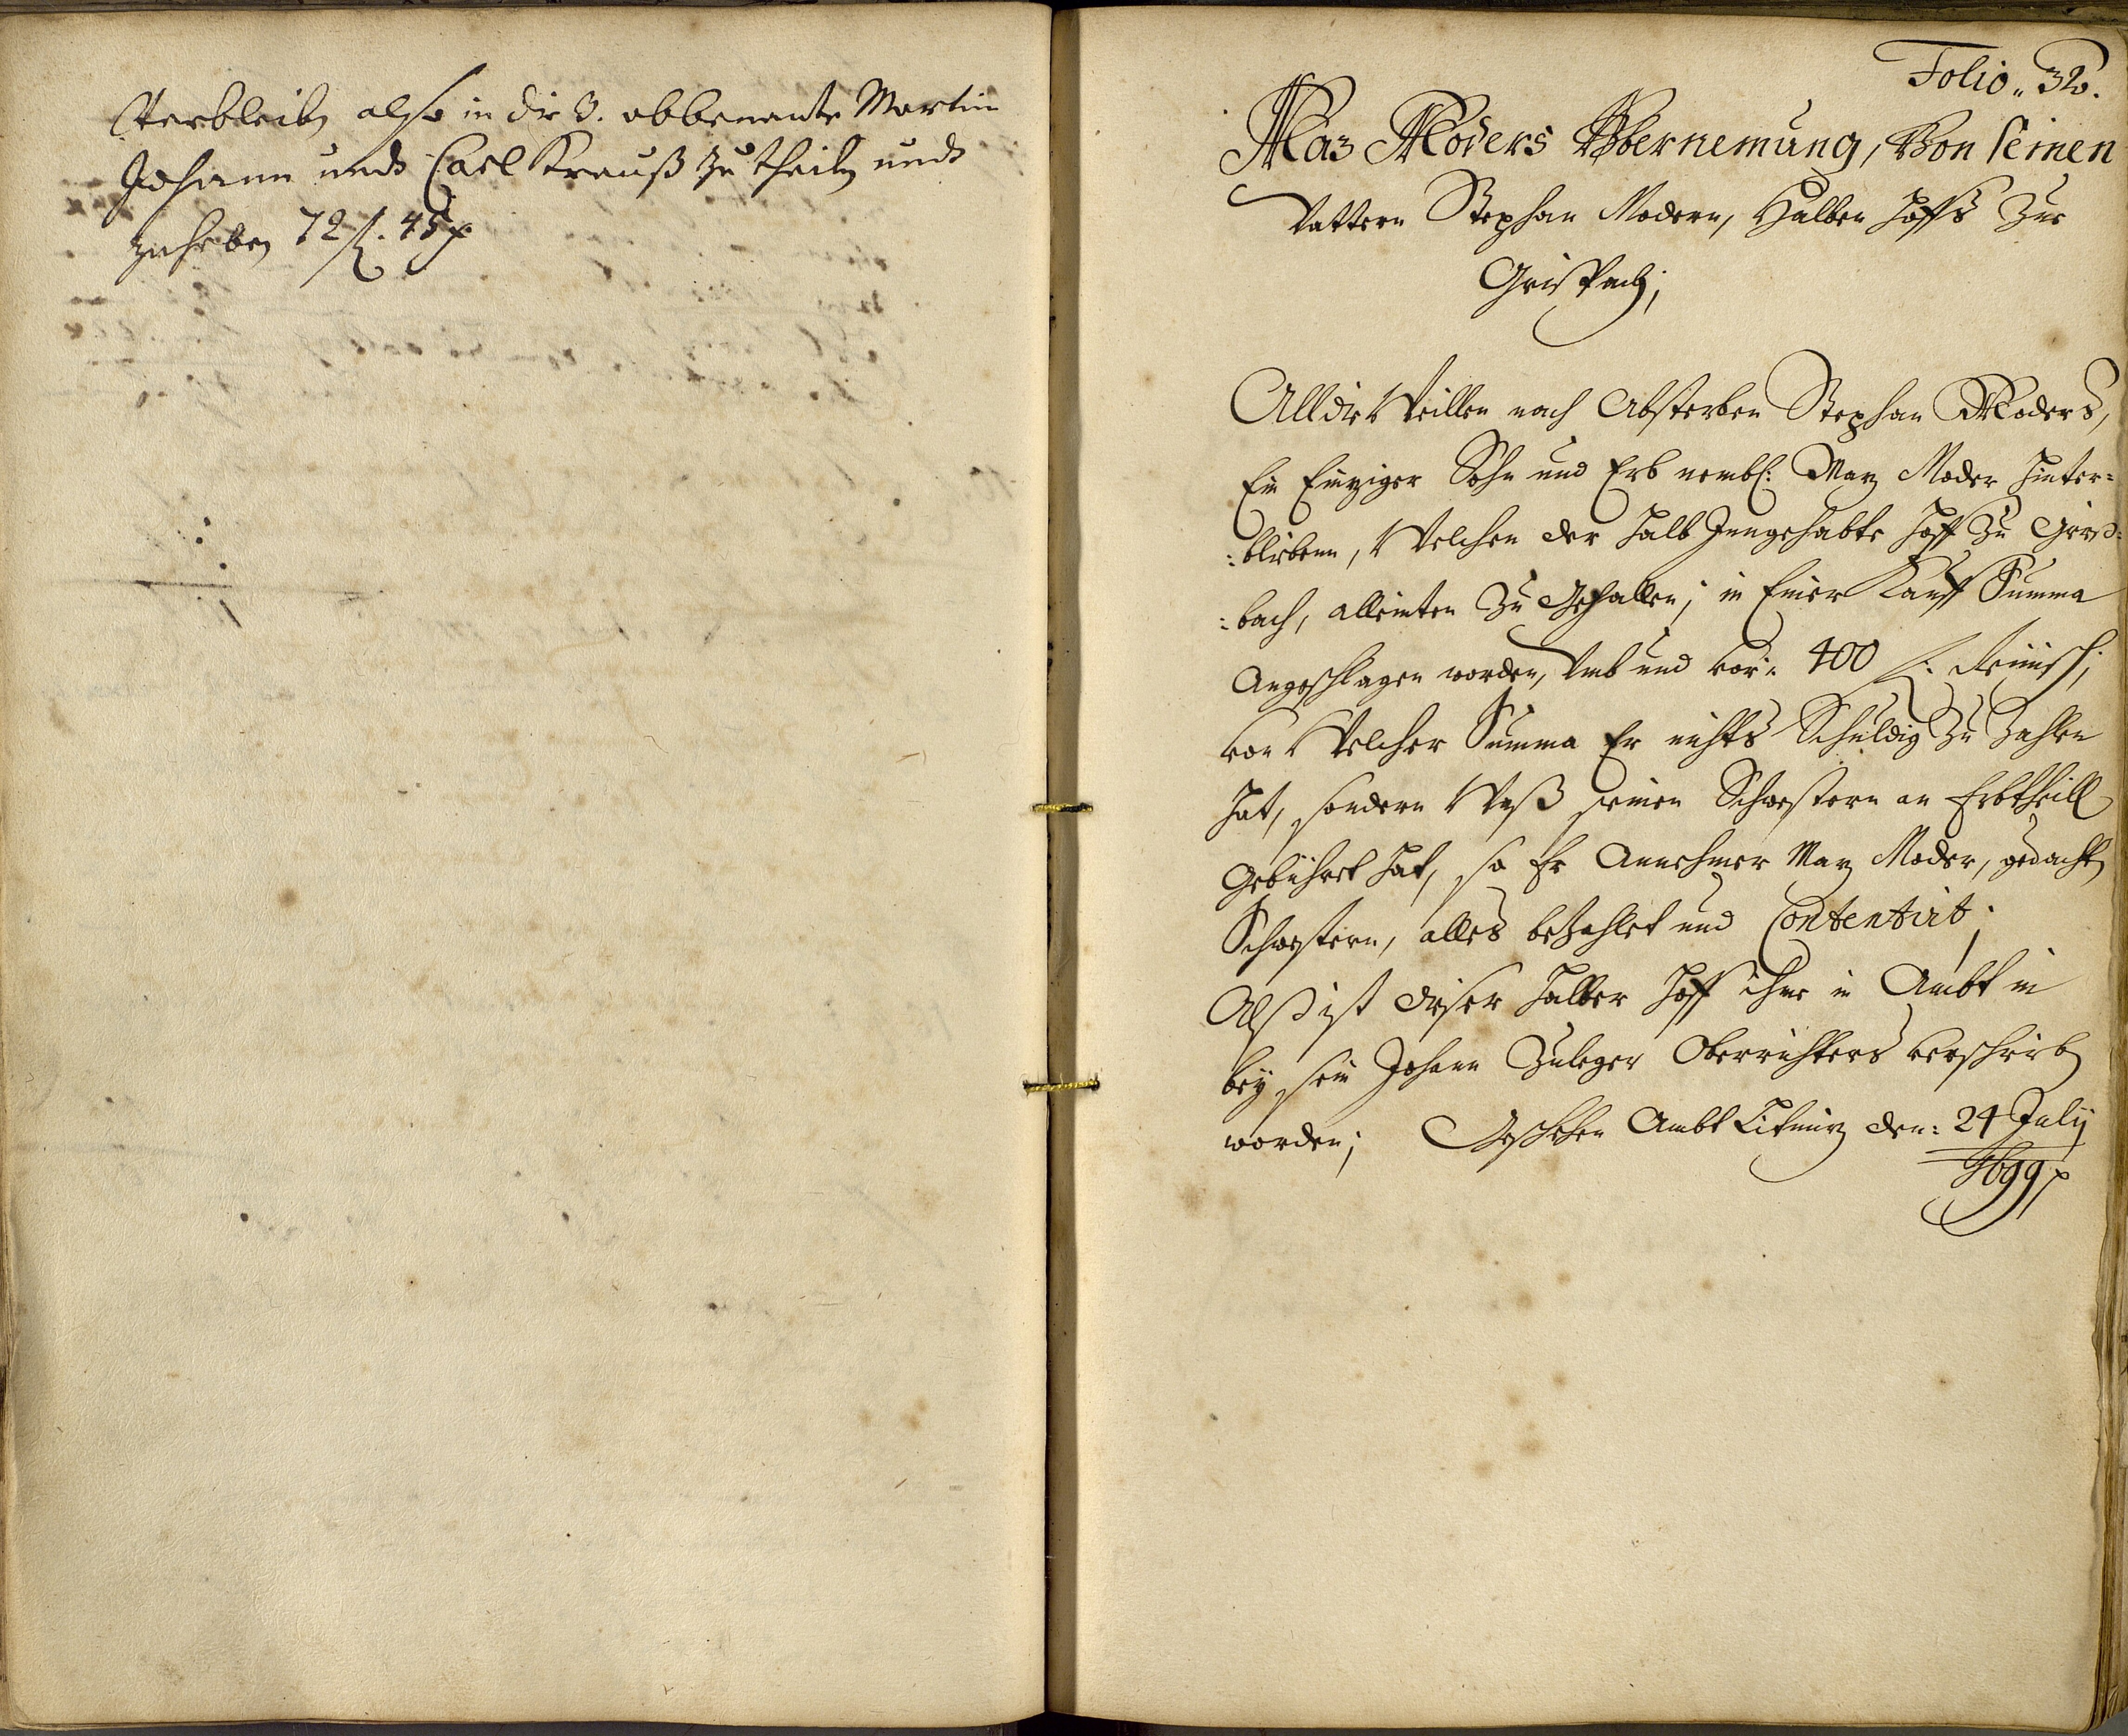 Verbleibn also in die 3. obbenante Martin
Johann undt Carl Krauß zu theiln undt
zuheben 72 f. 45 x
Folio „ 32.
Marz Moders Vbernemung, Von seinen
Vattern Stephan Modern, Halben Hoffs Zue
Grispach;
Alldie Weillen nach Absterben Stephan Moders,
Ein Einziger Sohn und Erb nembl: Marz Moder hinter=
:blieben, Welchen der halb Jnngehabte Hoff Zu Grieß=
:bach, alleinten Zu Gefallen; in Einer Kauff Summa
Angeschlagen worden, Vmb und vor: 400 f: Reinisch;
von Welcher Summa Er nichts Schuldig Zu Zahlen
hat, sondern Waß seinen Schwestern an Erbtheill
Gebühret hat, so Er Annehmer Marz Moder, gedachtn
Schwestern, alles beZahlet und Contentirt;
Alß ist dieser halber Hoff ihme in Ambt in
bey sein Johann Zuleger Oberrichters verschriebn
worden; Geschehen Ambt den: 24 July
1699